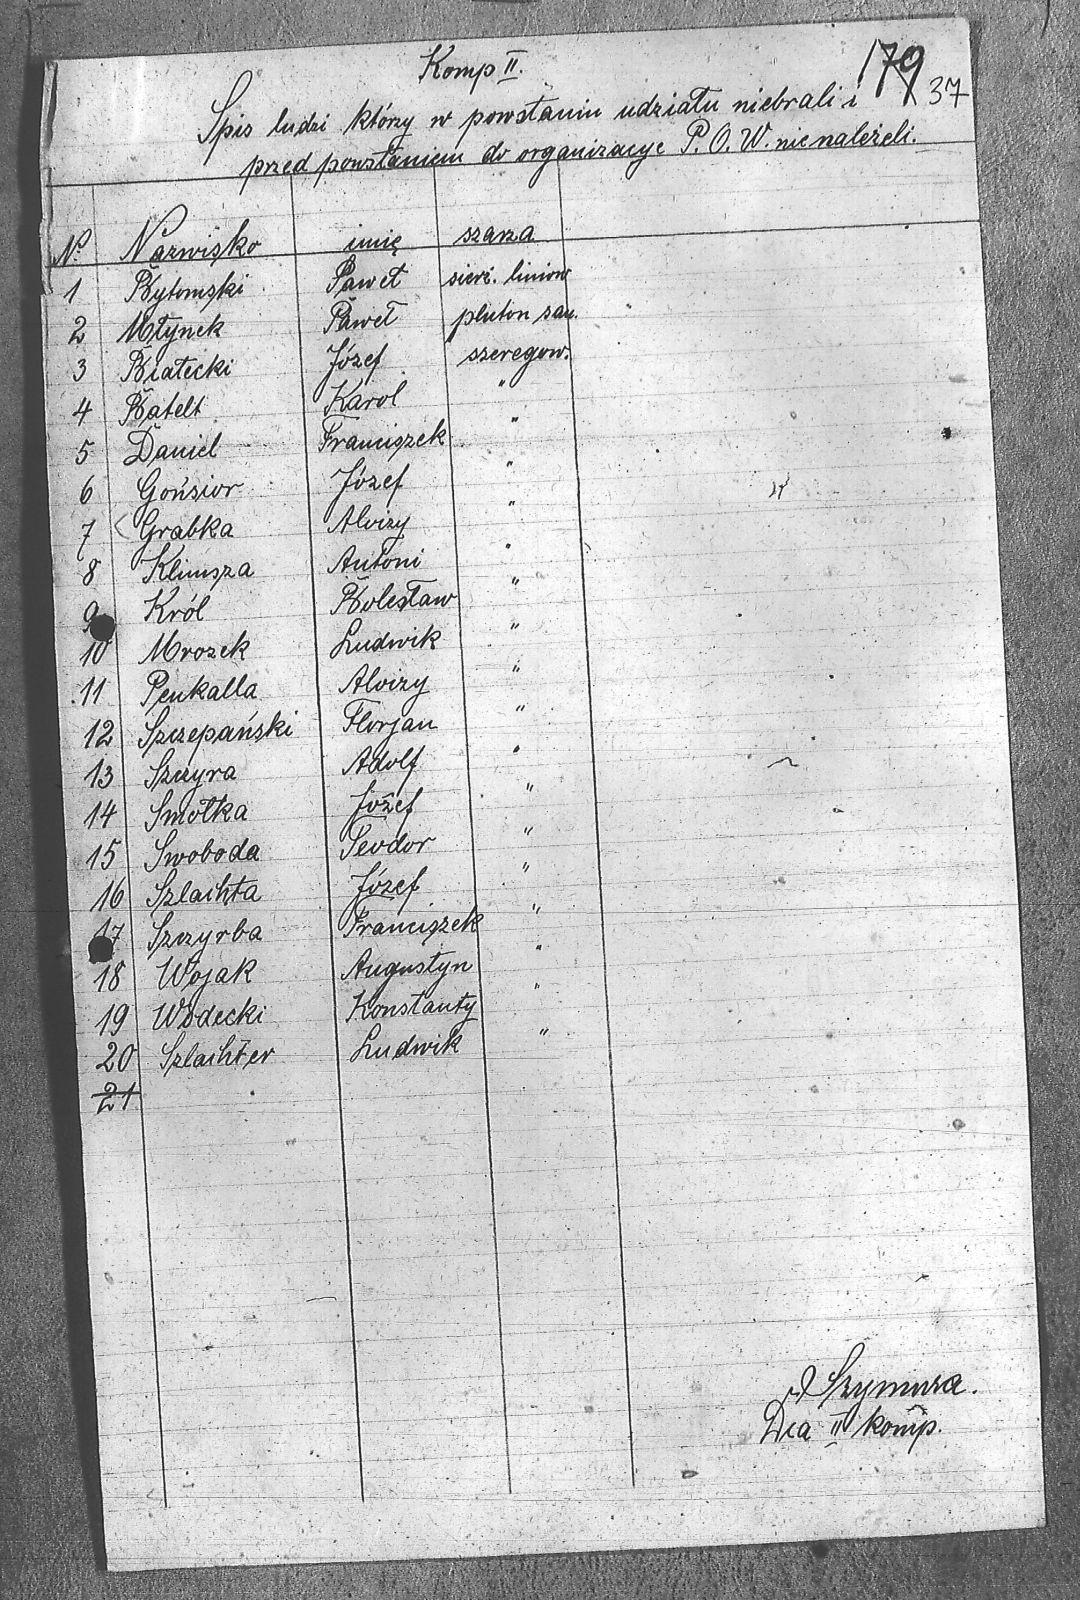 Komp II.
179 37
Spis ludzi którzy w powstaniu udziału niebrali i
przed powstaniem do organizacye P. O. W. nie należeli.
No Nazwisko imię szarza
1 Bytomski Paweł sierż. liniow
2 Młynek Paweł pluton san.
3 Białecki Józef szeregow.
4 Batelt Karol "
5 Daniel Franciszek "
6 Gońsior Józef "
7 Grabka Aloizy "
8 Klimsza Antoni "
9 Król Bolesław "
10 Mrozek Ludwik "
11 Penkalla Aloizy "
12 Szczepański Florjan "
13 Szczyra Adolf "
14 Smołka Józef "
15 Swoboda Teodor "
16 Szlachta Józef "
17 Szczyrba Franciszek "
18 Wojak Augustyn "
19 Wodecki Konstanty "
20 Szlachter Ludwik "
21
Szymura.
Dca II komp.